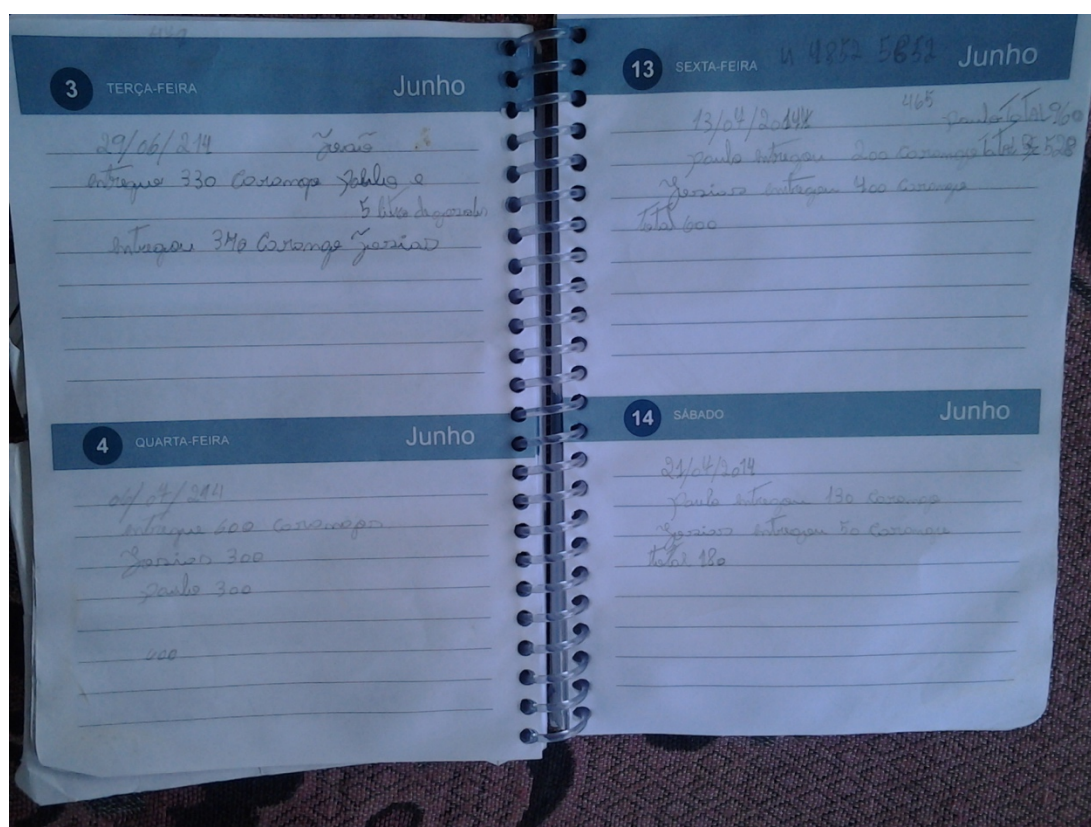 3 TERÇA-FEIRA Junho
29/06/214
entregue 330 Carango Pablo e
5 litros de
entregou 340 Carango Jozias
4 QUARTA-FEIRA Junho
06/07/214
entregue 600 Carangos
Jozias 300
paulo 300
400
13 SEXTA-FEIRA 4852 5652 Junho
465
13/07/2014 paulo ToTAL 960
paulo entregou 200 Carango 528
Jozias entregou 400 Carango
Total 600
14 SÁBADO Junho
21/07/2014
paulo entregou 130 Carango
Jozias entregou 50 Carangu
total 180